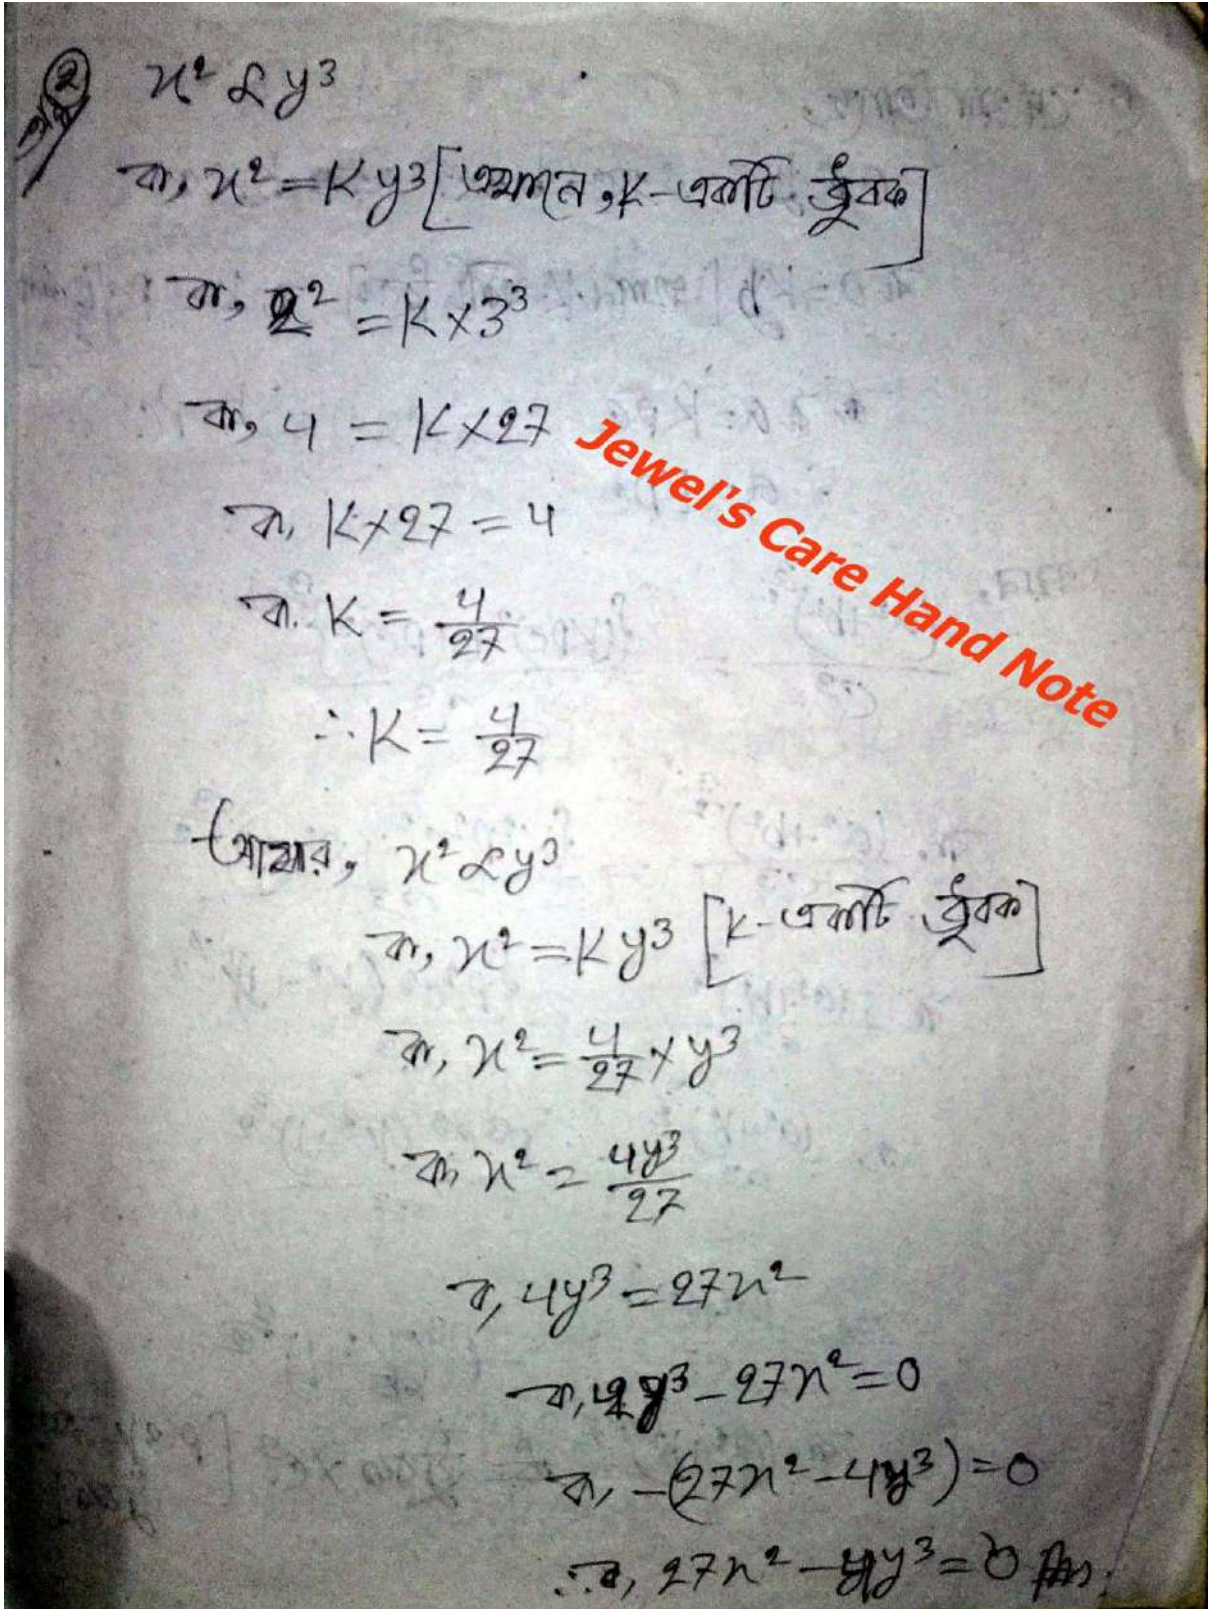 ২ x² ∝ y³
বা, x² = Ky³ [এখানে, K-একটি ধ্রুবক]
বা, 2² = K×3³
বা, 4 = K×27
বা, K×27 = 4
বা, K = 4/27
∴ K = 4/27
আবার, x² ∝ y³
বা, x² = Ky³ [K-একটি ধ্রুবক]
বা, x² = 4/27 × y³
বা, x² = 4y³/27
বা, 4y³ = 27x²
বা, 4y³ - 27x² = 0
বা, -(27x² - 4y³) = 0
∴ বা, 27x² - 4y³ = 0 Ans.
Jewel's Care Hand Note